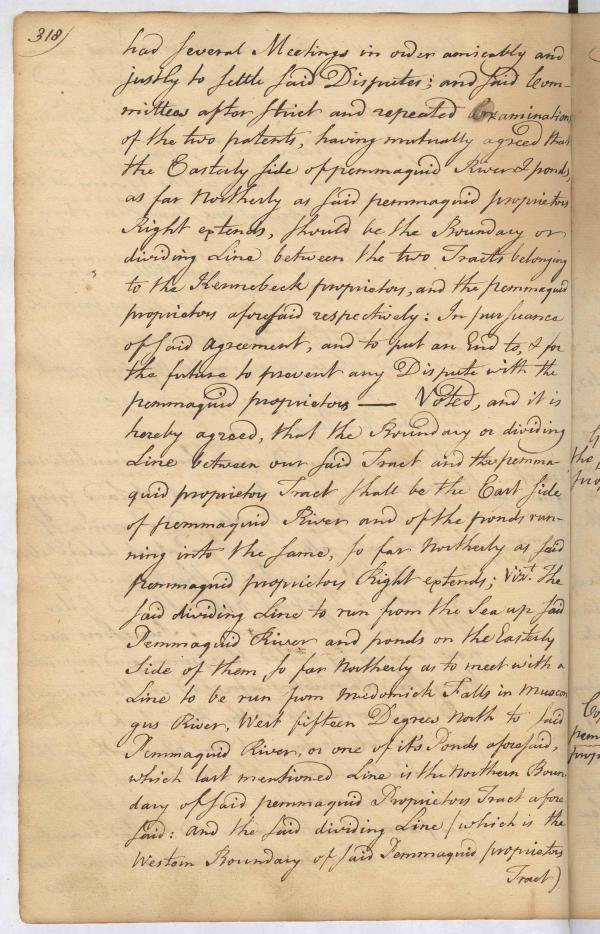 318)
had several Meetings in order amicably and
justly to settle said Disputes; and said Com-
mittees after strict and repeated Examination
of the two patents, having mutually agreed that
the Easterly side of pemmaquid River & ponds,
as far Northerly as said pemmaquid proprietors
Right extends, should be the Boundary or
dividing Line between the two Tracts belonging
to the Kennebeck proprietors, and the pemmaquid
proprietors aforesaid respectively: In pursuance
of said Agreement, and to put an End to, & for
the future to prevent any Dispute with the
pemmaquid proprietors — Voted, and it is
hereby agreed, that the Boundary or dividing
Line between our said Tract and the pemma-
quid proprietors Tract shall be the East side
of pemmaquid River and of the ponds run-
ning into the same, so far Northerly as said
Pemmaquid proprietors Right extends; Vizt. The
said dividing Line to run from the Sea up said
Pemmaquid River and ponds on the Easterly
Side of them, so far Northerly as to meet with a
Line to be run from Medomick Falls in Muscon
gus River, West fifteen Degrees North to said
Pemmaquid River, or one of it's Ponds aforesaid,
which last mentioned Line is the Northern Boun-
dary of said pemmaquid Proprietors Tract afore
said: and the said dividing Line (which is the
Western Boundary of said Pemmaquid proprietors
Tract)